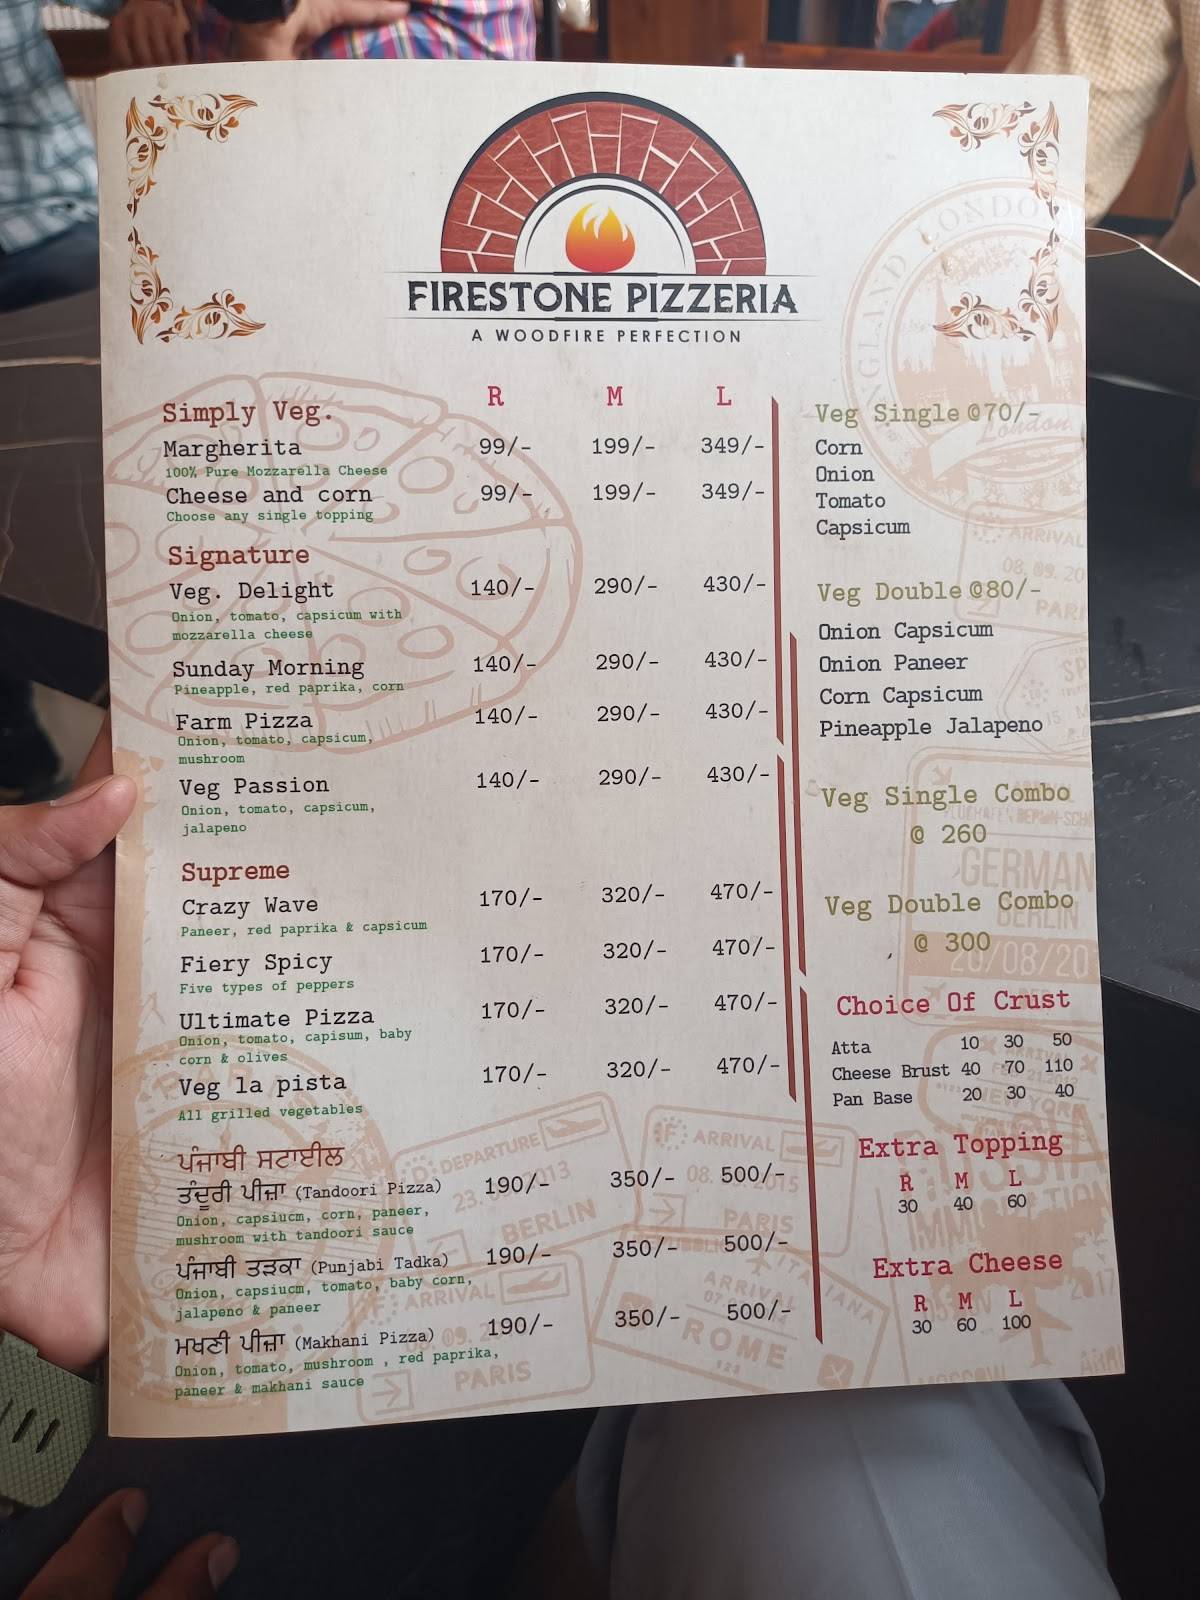 FIRESTONE PIZZERIA
A WOODFIRE PERFECTION
R M L
Simply Veg.
Margherita 99/- 199/- 349/-
100% Pure Mozzarella Cheese
Cheese and corn 99/- 199/- 349/-
Choose any single topping
Signature
Veg. Delight 140/- 290/- 430/-
Onion, tomato, capsicum with
mozzarella cheese
Sunday Morning 140/- 290/- 430/-
Pineapple, red paprika, corn
Farm Pizza 140/- 290/- 430/-
Onion, tomato, capsicum,
mushroom
Veg Passion 140/- 290/- 430/-
Onion, tomato, capsicum,
jalapeno
Supreme
Crazy Wave 170/- 320/- 470/-
Paneer, red paprika & capsicum
Fiery Spicy 170/- 320/- 470/-
Five types of peppers
Ultimate Pizza 170/- 320/- 470/-
Onion, tomato, capisum, baby
corn & olives
Veg la pista 170/- 320/- 470/-
All grilled vegetables
ਪੰਜਾਬੀ ਸਟਾਈਲ
ਤੰਦੂਰੀ ਪੀਜ਼ਾ (Tandoori Pizza) 190/- 350/- 500/-
Onion, capsiucm, corn, paneer,
mushroom with tandoori sauce
ਪੰਜਾਬੀ ਤੜਕਾ (Punjabi Tadka) 190/- 350/- 500/-
Onion, capsiucm, tomato, baby corn,
jalapeno & paneer
ਮਖਣੀ ਪੀਜ਼ਾ (Makhani Pizza) 190/- 350/- 500/-
Onion, tomato, mushroom , red paprika,
paneer & makhani sauce
Veg Single @70/-
Corn
Onion
Tomato
Capsicum
Veg Double @80/-
Onion Capsicum
Onion Paneer
Corn Capsicum
Pineapple Jalapeno
Veg Single Combo
@ 260
Veg Double Combo
@ 300
Choice Of Crust
Atta 10 30 50
Cheese Brust 40 70 110
Pan Base 20 30 40
Extra Topping
R M L
30 40 60
Extra Cheese
R M L
30 60 100
LONDON
London
ARRIVAL
08. 09. 20
PARI
GERMAN
BERLIN
20/08/20
DEPARTURE
23. 2013
BERLIN
ARRIVAL
08. 2015
PARIS
ARRIVAL
PARIS
ARRIVAL
ROME
123